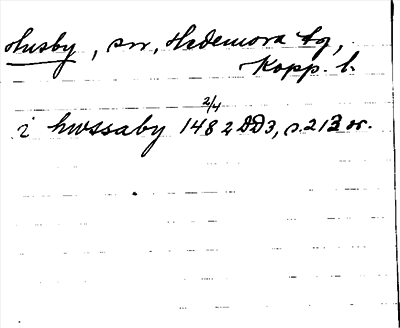 Husby, sn, Hedemora tg,
Kopp. l.
2/4
i hwssaby 1482 DD3, s. 213 or.